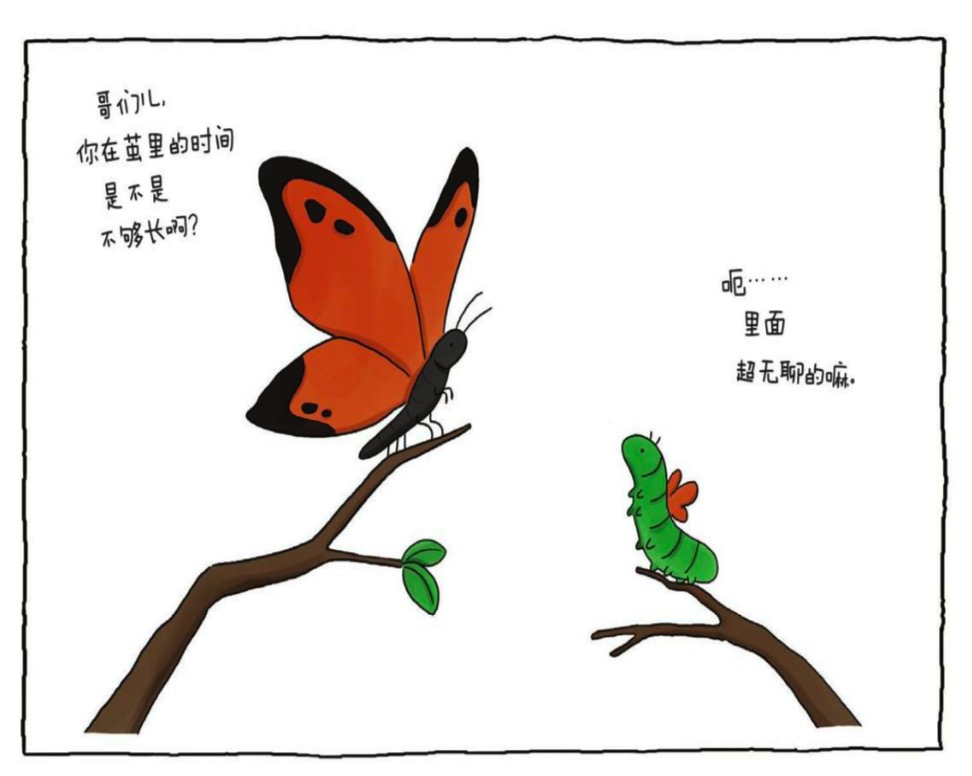 哥们儿,
你在茧里的时间
是不是
不够长啊?
呃……
里面
超无聊的嘛。